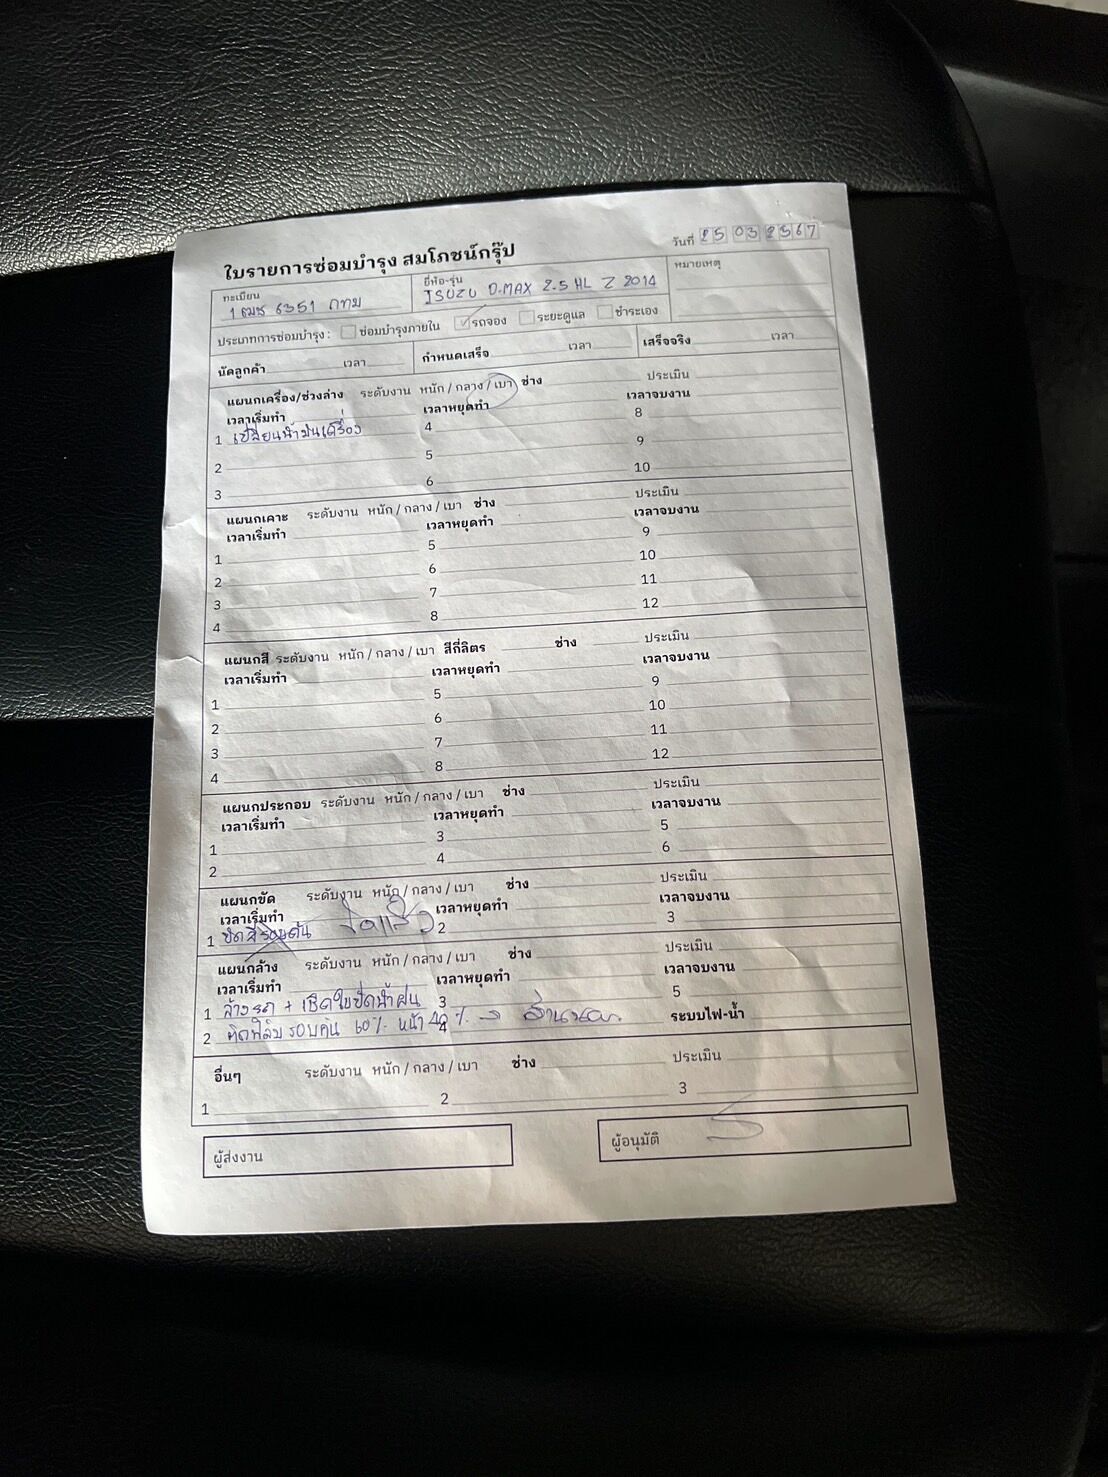 ใบรายการซ่อมบำรุง สมโภชน์กรุ๊ป
วันที่ 25 03 2567
ทะเบียน
6351 กทม
ยี่ห้อ-รุ่น
ISUZU D-MAX 2.5 HL Z 2014
หมายเหตุ
ประเภทการซ่อมบำรุง : ซ่อมบำรุงภายใน รถจอง ระยะดูแล ชำระเอง
นัดลูกค้า เวลา กำหนดเสร็จ เวลา เสร็จจริง เวลา
แผนกเครื่อง/ช่วงล่าง ระดับงาน หนัก / กลาง / เบา ช่าง ประเมิน
เวลาเริ่มทำ เวลาหยุดทำ เวลาจบงาน
1 เปลี่ยนน้ำมันเครื่อง 4 8
2 5 9
3 6 10
แผนกเคาะ ระดับงาน หนัก / กลาง / เบา ช่าง ประเมิน
เวลาเริ่มทำ เวลาหยุดทำ เวลาจบงาน
1 5 9
2 6 10
3 7 11
4 8 12
แผนกสี ระดับงาน หนัก / กลาง / เบา สีกี่ลิตร ช่าง ประเมิน
เวลาเริ่มทำ เวลาหยุดทำ เวลาจบงาน
1 5 9
2 6 10
3 7 11
4 8 12
แผนกประกอบ ระดับงาน หนัก / กลาง / เบา ช่าง ประเมิน
เวลาเริ่มทำ เวลาหยุดทำ เวลาจบงาน
1 3 5
2 4 6
แผนกขัด ระดับงาน หนัก / กลาง / เบา ช่าง ประเมิน
เวลาเริ่มทำ เวลาหยุดทำ เวลาจบงาน
1 ขัดสีรอบคัน ขัดแล้ว 2 3
แผนกล้าง ระดับงาน หนัก / กลาง / เบา ช่าง ประเมิน
เวลาเริ่มทำ เวลาหยุดทำ เวลาจบงาน
1 ล้างรถ + เช็คใบปัดน้ำฝน 3 5
2 ติดฟิล์มรอบคัน 60% หน้า 40% → 4 ระบบไฟ-น้ำ
อื่นๆ ระดับงาน หนัก / กลาง / เบา ช่าง ประเมิน
1 2 3
ผู้ส่งงาน
ผู้อนุมัติ